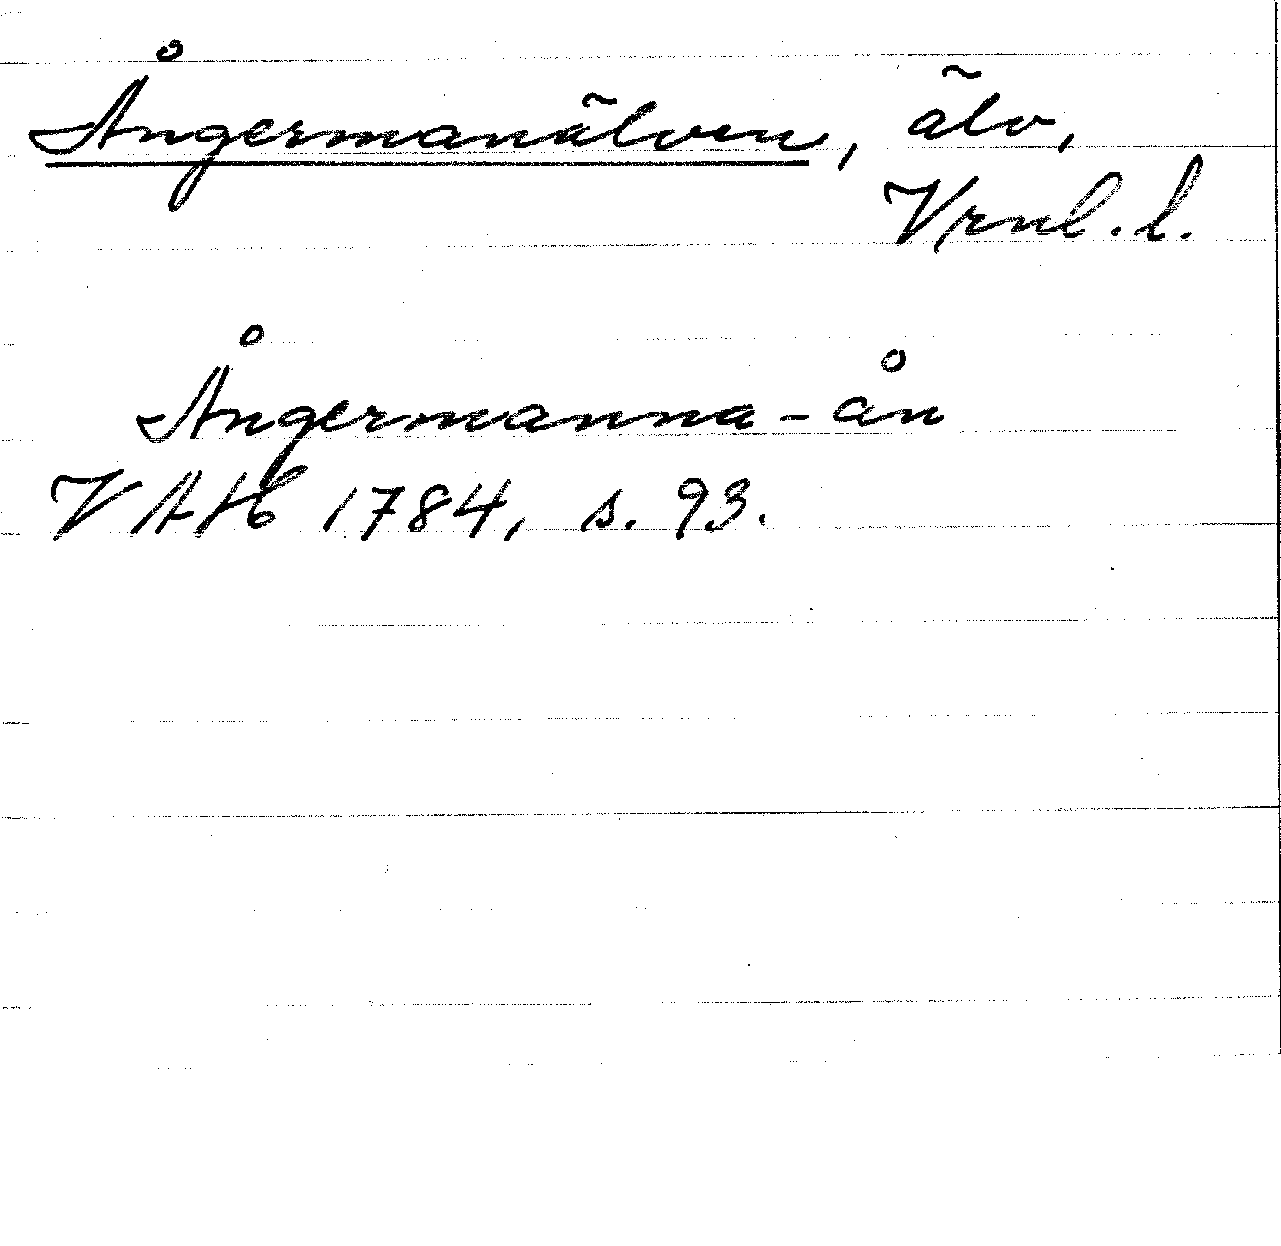 Ångermanälven, älv,
Vrnl. l.
Ångermanna-ån
VAH 1784, s. 93.